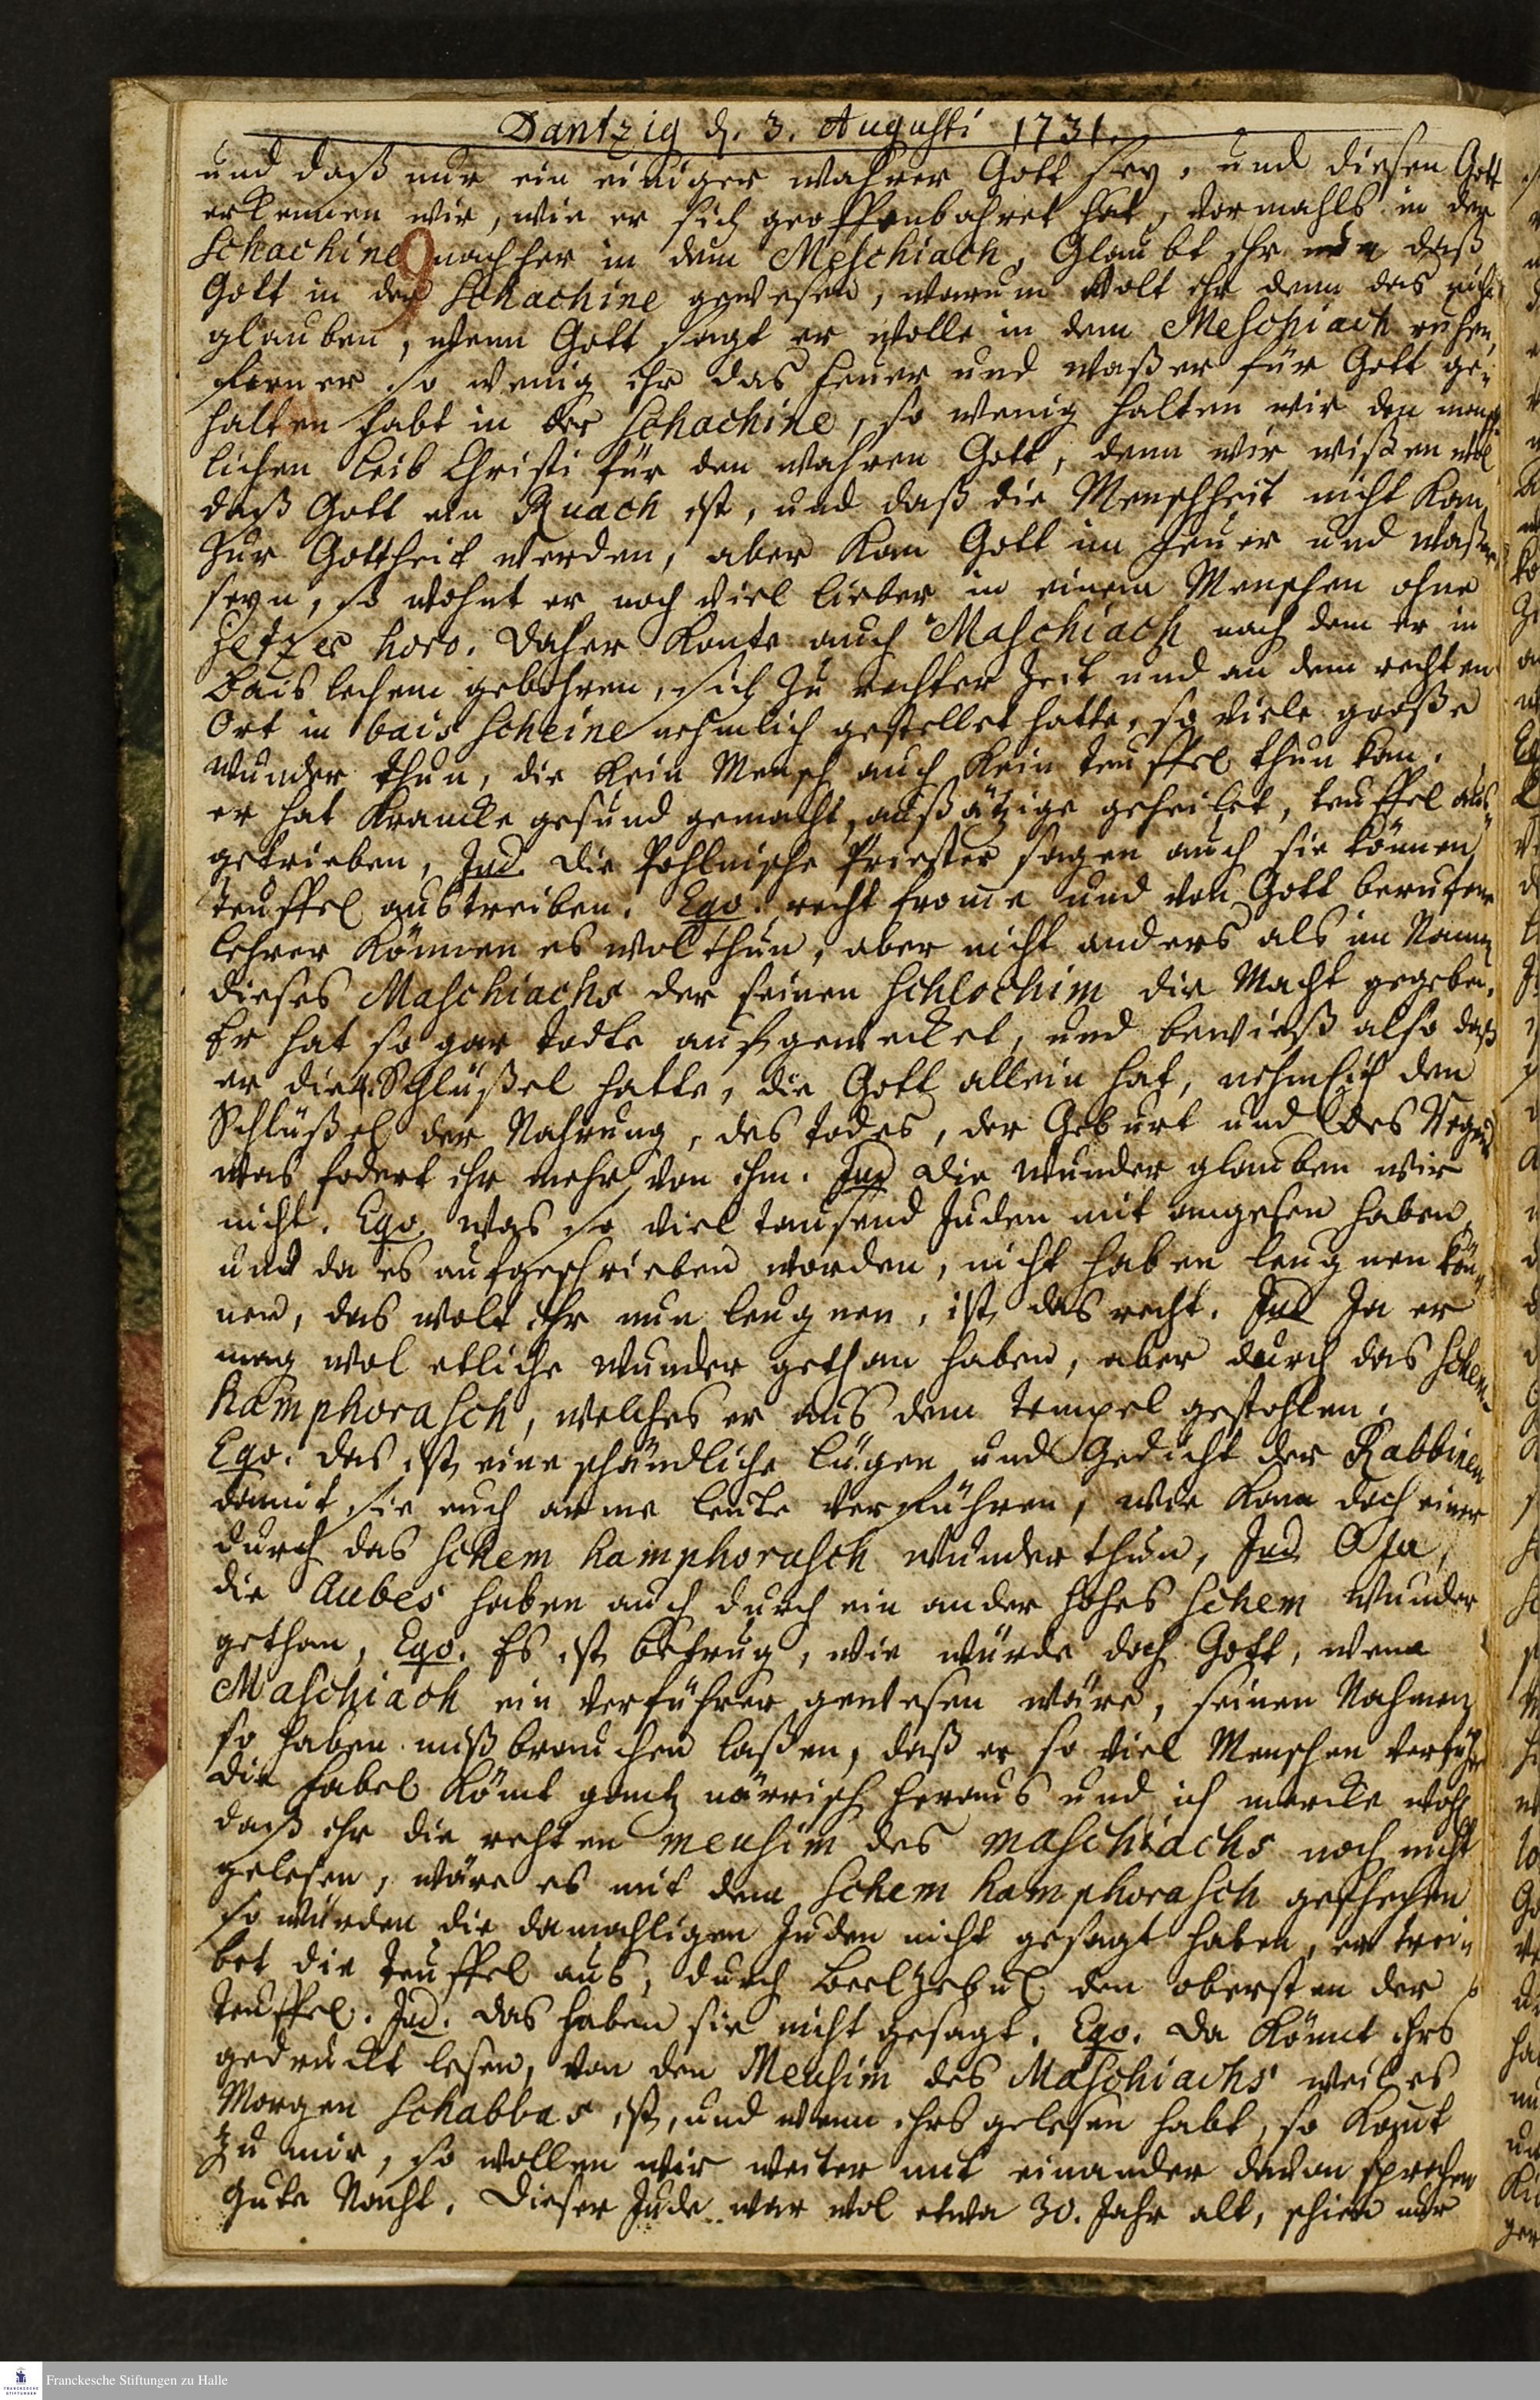 Dantzig d. 3. Augusti 1731.
und daß nur ein einiger wahrer Gott sey, und diesen Gott
erkennen wir, wie er sich geoffenbahret hat, vormahls in der
Schachine nachher in dem Meschiach, Glaubt ihr nun daß
Gott in der Schachine gewesen, warum wolt ihr denn das nicht
glauben, wenn Gott sagt er wolle in dem Meschiach ruhen,
ferner so wenig ihr das Feuer und Waßer für Gott ge-
halten habt in der Schachine, so wenig halten wir den mensch
lichen Leib Christi für den wahren Gott, denn wir wißen wol
daß Gott ein Ruach ist, und daß die Menschheit nicht kan
zur Gottheit werden, aber kan Gott im Feuer und Waßer
seyn, so wohnt er noch viel lieber in einem Menschen ohne
Jetzer horo. Daher konte auch Maschiach nach dem er in
Bais lechem gebohren, sich zu rechter Zeit und an dem rechten
Ort in bais Scheine nehmlich gestellet hatte, so viele große
Wunder thun, die kein Mensch auch kein Teuffel thun kan.
er hat Krancke gesund gemacht, außätzige geheilet, Teuffel aus-
getrieben, Jud. Die Pohlnische Priester sagen auch sie können
Teuffel austreiben. Ego. recht fromme und von Gott berufene
Lehrer können es wol thun, aber nicht anders als im Namen
dieses Maschiachs der seinen Schlochim die Macht gegeben.
Er hat so gar Todte aufgewecket, und bewieß also daß
er die 4 Schlüßel hatte, die Gott allein hat, nehmlich den
Schlüßel der Nahrung, des Todes, der Geburt und des Regens
was fodert ihr mehr von ihm. Jud Die Wunder glauben wir
nicht. Ego. Was so viel tausend Juden mit angesen haben,
und da es aufgeschrieben worden, nicht haben leugnen kön-
nen, das wolt ihr nun leugnen, ist das recht. Jud Ja er
mag wol etliche Wunder gethan haben, aber durch das Schem-
hamphorasch, welches er aus dem Tempel gestohlen.
Ego. Das ist eine schändliche Lügen und Gedicht der Rabbinen
damit sie euch arme Leute verführen, wie kann doch einer
durch das Schem hamphorasch Wunder thun, Jud O Ja,
die Aubes haben auch durch ein ander hohes Schem Wunder
gethan, Ego. Es ist Betrug, wie würde doch Gott, wenn
Maschiach ein Verführer gewesen wäre, seinen Nahmen
so haben mißbrauchen laßen, daß er so viel Menschen verführe
Die Fabel kömt gantz närrisch heraus und ich mercke wohl
daß ihr die rechten meusim des maschiachs noch nicht
gelesen, wäre es mit dem Schem hamphorasch geschehen
so würden die damahligen Juden nicht gesagt haben, er trei-
bet die Teuffel aus, durch Beelzebul den obersten der
Teuffel. Jud. Das haben sie nicht gesagt. Ego. Da könnt ihrs
gedruckt lesen, von den Meusim des Maschiachs weil es
Morgen Schabbas ist, und wenn ihrs gelesen habt, so komt
zu mir, so wollen wir weiter mit einander davon sprechen
Gute Nacht. Dieser Jude war wol etwa 30. Jahr alt, schien mir
Franckesche Stiftungen zu Halle